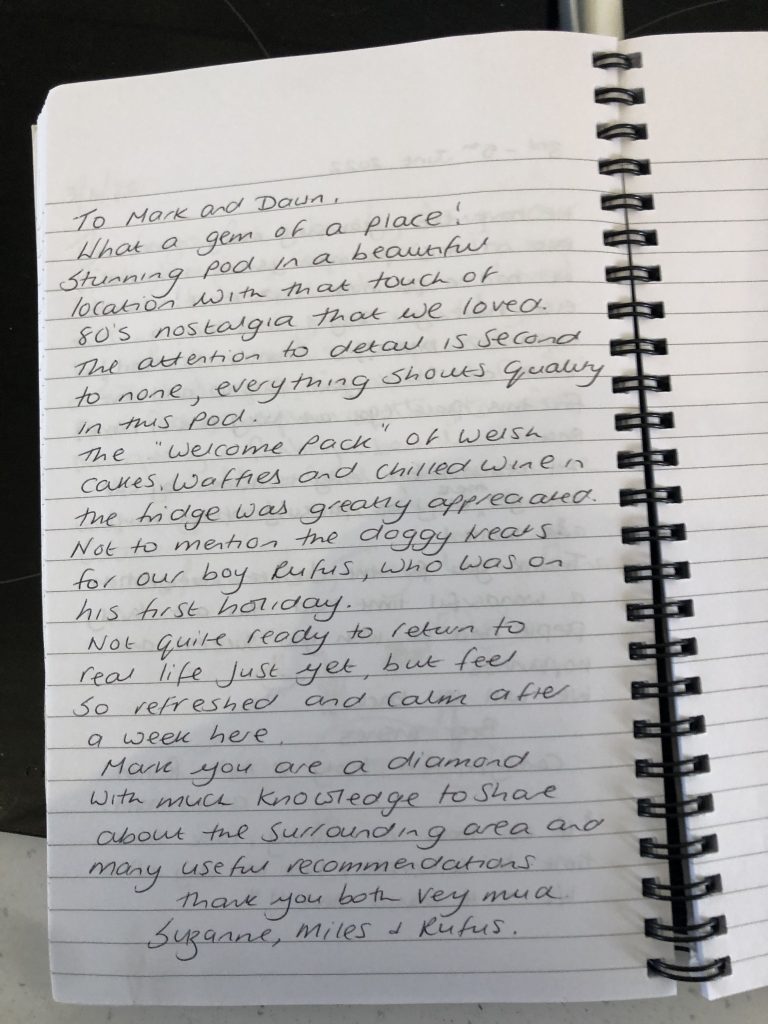 To Mark and Dawn,
What a gem of a place!
Stunning pod in a beautiful
location with that touch of
80's nostalgia that we loved.
The attention to detail is second
to none, everything shouts quality
in this pod.
The "Welcome Pack" of Welsh
cakes, Waffles and chilled wine in
the fridge was greatly appreciated.
Not to mention the doggy treats
for our boy Rufus, who was on
his first holiday.
Not quite ready to return to
real life just yet, but feel
so refreshed and calm after
a week here.
Mark you are a diamond
with much knowledge to share
about the surrounding area and
many useful recommendations
Thank you both very much.
Suzanne, Miles & Rufus.